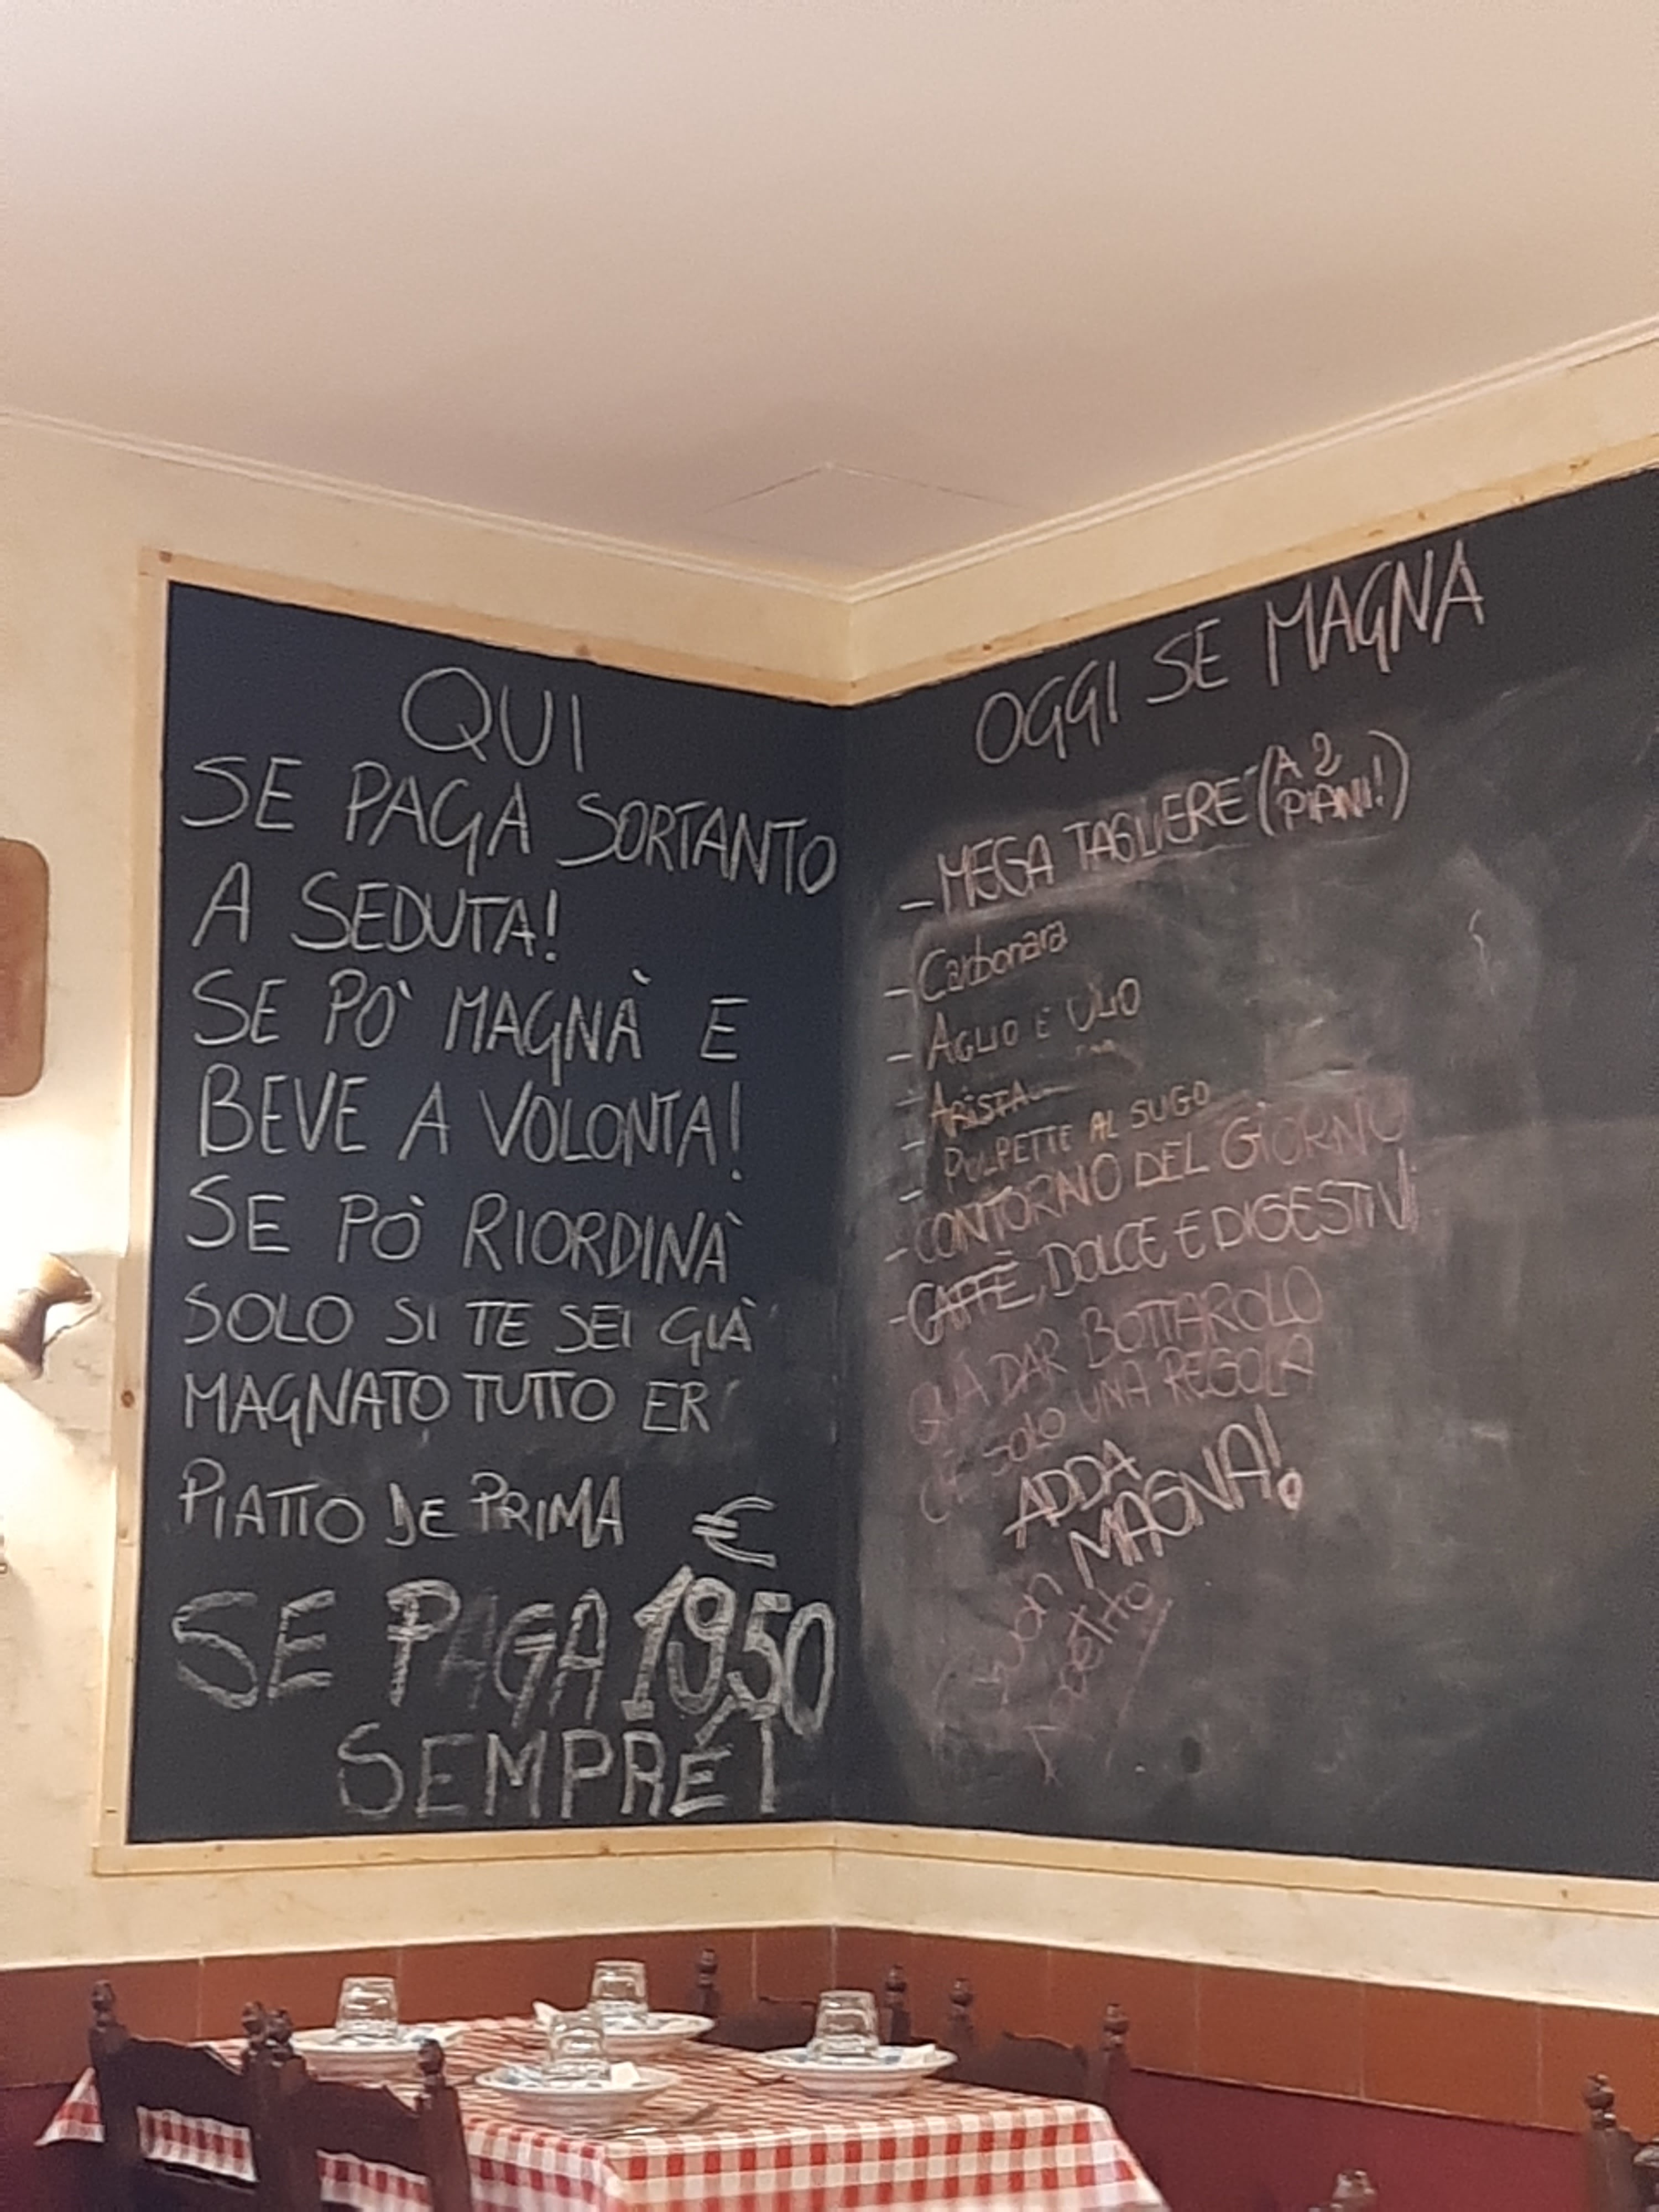 QUI
SE PAGA SORTANTO
A SEDUTA!
SE PO' MAGNÀ E
BEVE A VOLONTA!
SE PÒ RIORDINÀ
SOLO SI TE SEI GIÀ
MAGNATO TUTTO ER
PIATTO DE PRIMA
€
SE PAGA 19,50
SEMPRE!
OGGI SE MAGNA
- MEGA TAGLIERE (A 2
PIANI!)
- Carbonara
- AGLIO E OLIO
- ARISTA
- POLPETTE AL SUGO
- CONTORNO DEL GIORNO
- CAFFÈ, DOLCE E DIGESTIVI
QUA DAR BOTTAROLO
C'È SOLO UNA REGOLA
ADDA
MAGNA!
Buon
Appetito